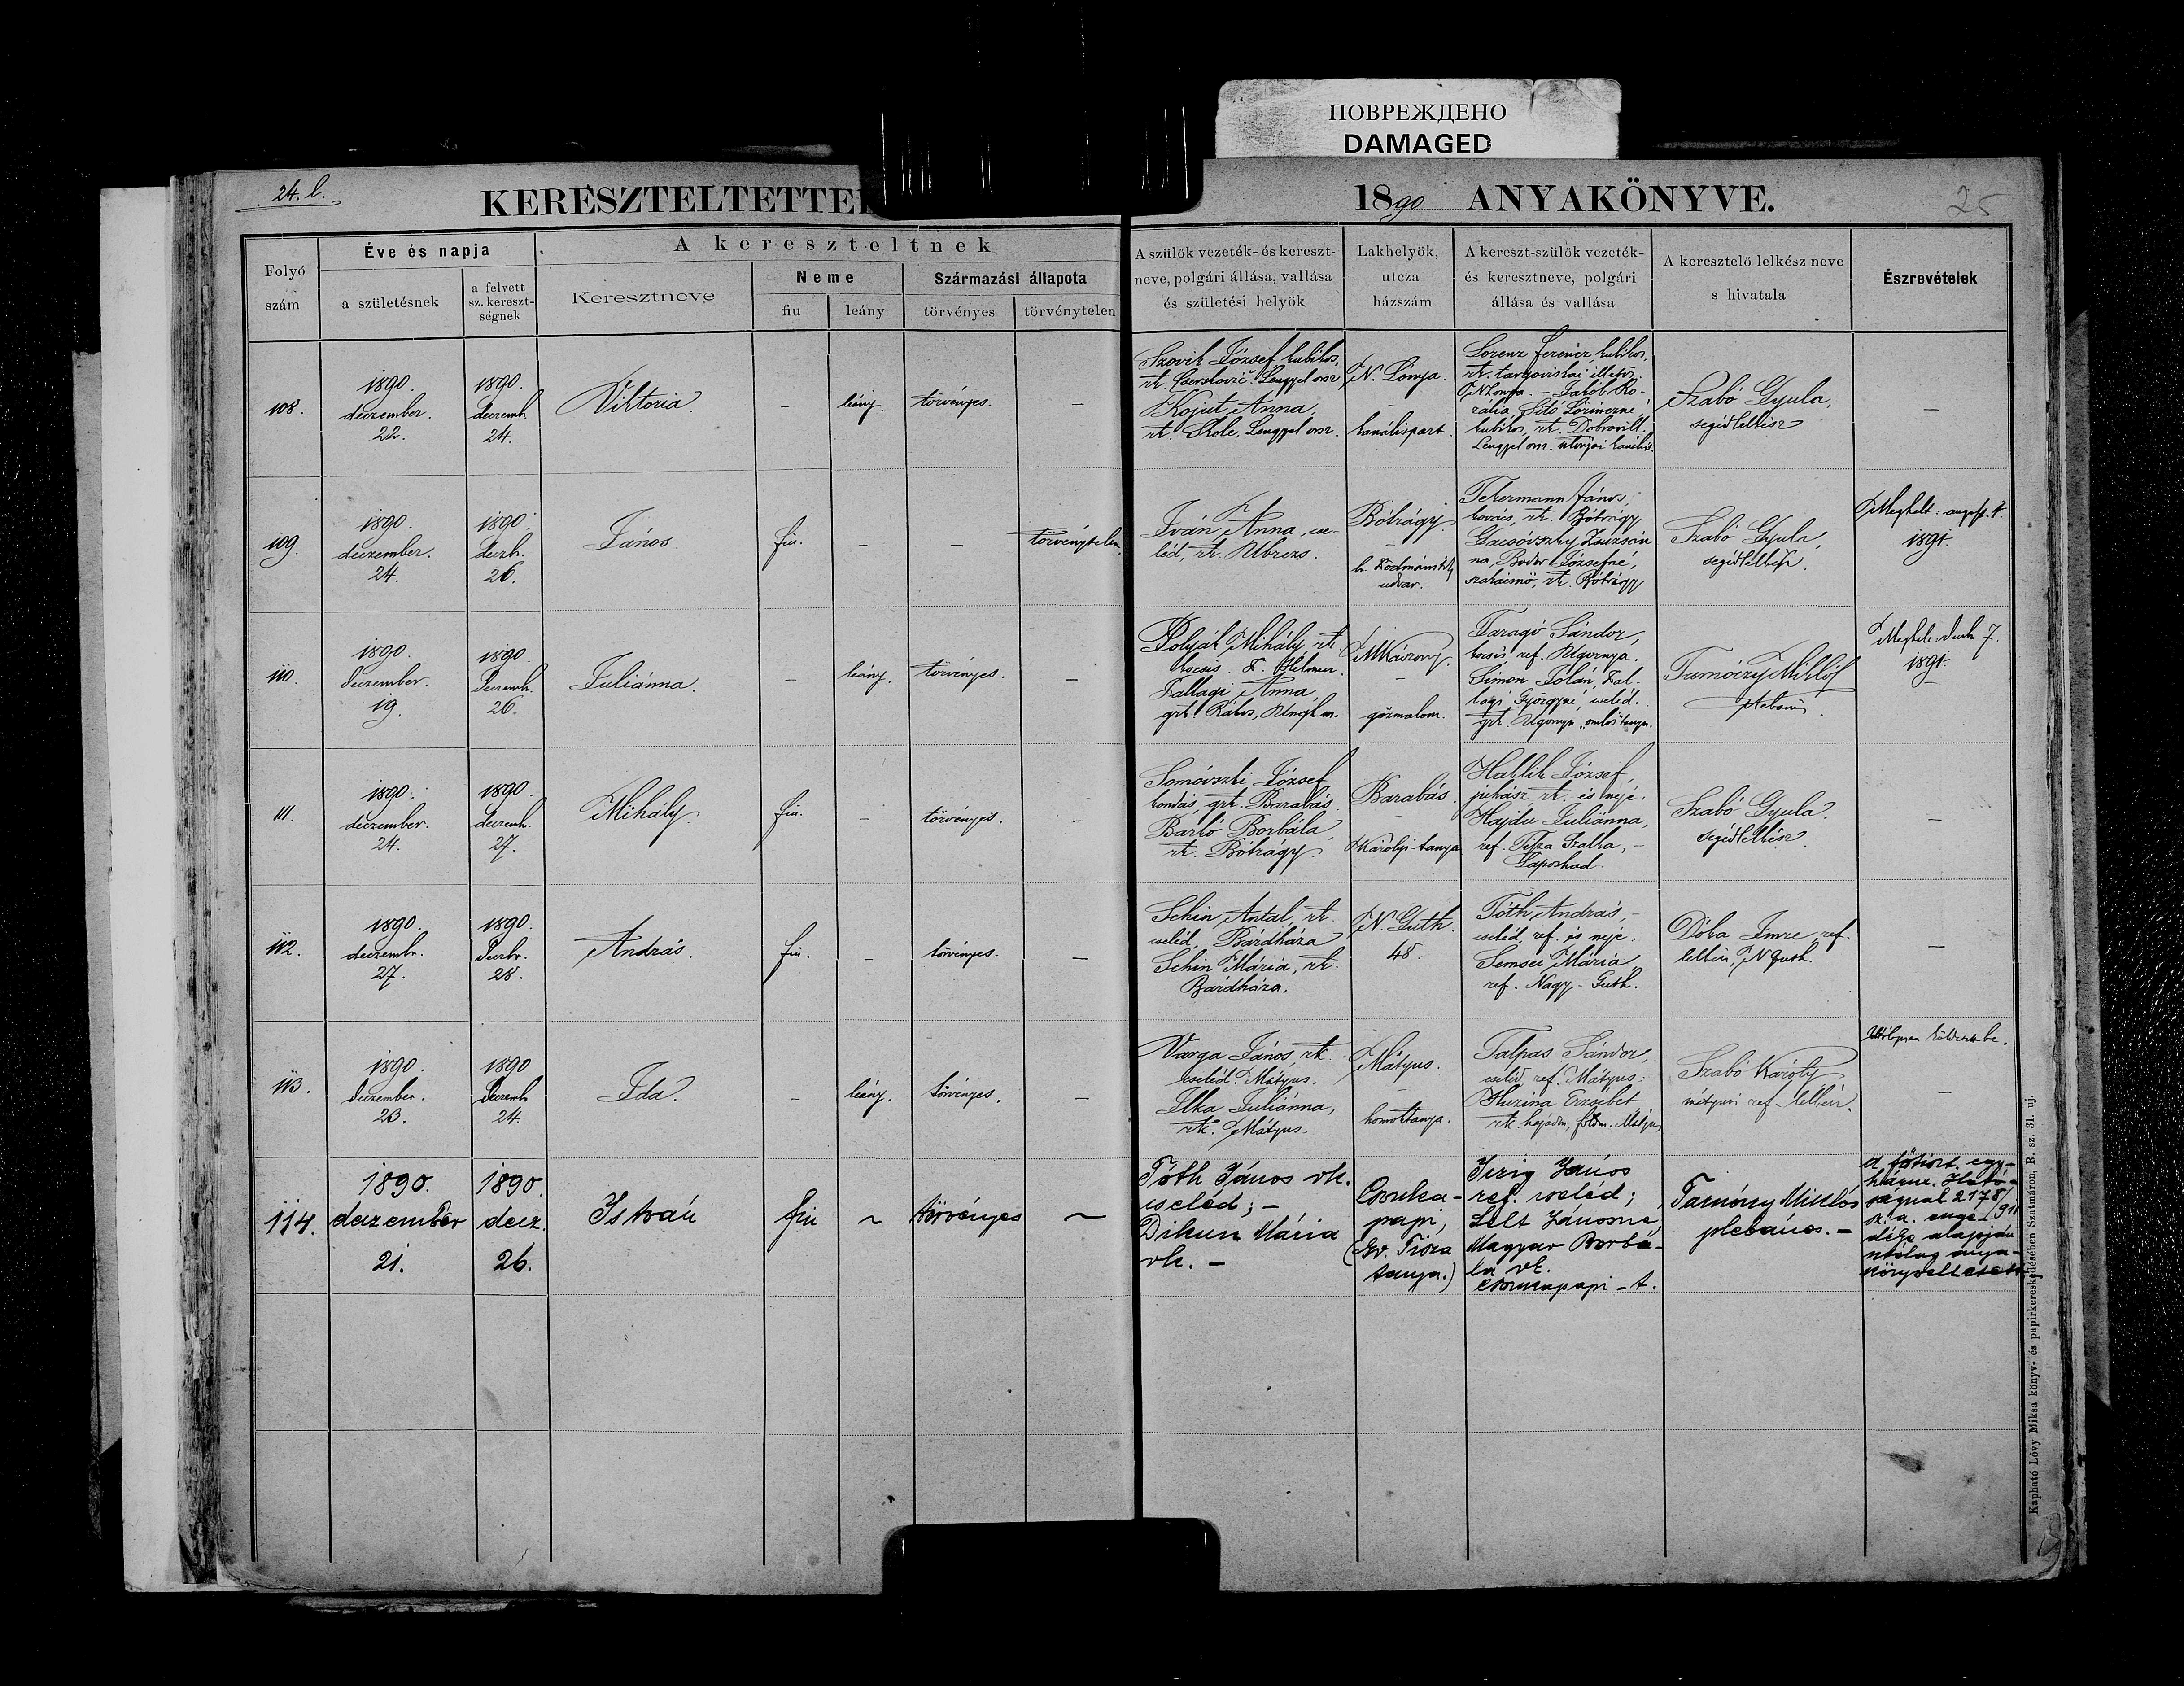 ПОВРЕЖДЕНО
DAMAGED
24. l.
KERESZTELTETTE
1890 ANYAKÖNYVE.
25
Folyó
szám
Éve és napja
a születésnek
a felvett
sz. kereszt-
ségnek
A kereszteltnek
Keresztneve
Neme
fiu
leány
Származási állapota
törvényes
törvénytelen
A szülök vezeték- és kereszt-
neve, polgári állása, vallása
és születési helyök
Lakhelyök,
utcza
házszám
A kereszt-szülök vezeték-
és keresztneve, polgári
állása és vallása
A keresztelö lelkész neve
s hivatala
Észrevételek
108.
1890.
deczember.
22.
1890.
deczemb.
24.
Viktoria.
–
leány.
törvényes.
–
József kubikos,
rk. Lengyel orsz.
Kojut Anna,
rk. Stole, Lengyel orsz.
N. Lónya.
–
kanálispart.
Lorenz Ferencz, kubikos,
rk.
N Lonya. – Jakób Ro-
zália,
kubikos, rk.
Lengyel orsz.
Szabó Gyula,
segédlelkész
–
109.
1890.
deczember.
24.
1890.
deczb.
26.
János.
fiu.
–
–
törvénytelen.
Iván Anna, cse-
léd, rk. Ubrezs.
Bótrágy
–
udvar.
János,
kovács, rk. Bótrágy
Zsuzsán
na, Bodor Józsefné,
rk. Bótrágy
Szabó Gyula,
segédlelkész.
Meghalt: aug. 4.
1891.
110.
1890.
deczember.
19.
1890.
deczemb.
26.
Juliánna.
–
leány.
törvényes.
–
Polyák Mihály rk.
kocsis. K. Helmec.
Anna,
M Kászony.
–
gözmalom.
Faragó Sándor,
kocsis ref. Ugornya.
Simon
Györgyné, cseléd.
Tarnóczy Miklós
plebános.
Meghalt. 7.
1891.
111.
1890.
deczember.
24.
1890.
deczemb.
27.
Mihály
fiu.
–
törvényes.
–
Somóvszki József
kondás, grk. Barabás.
Borbála,
rk. Bótrágy.
Barabás.
–
Károlyi-tanya
Hablik József,
juhász rk. és neje.
Hajdu Juliánna,
ref. –
Szabó Gyula.
segédlelkész.
–
112.
1890.
deczembr.
27.
1890.
deczbr.
28.
András.
fiu.
–
törvényes.
–
Schin Antal, rk.
cseléd, Bárdháza
Schin Mária, rk.
Bárdháza.
N. Guth.
48.
Tóth András, –
cseléd, ref. és neje.
Semsei Mária
ref. Nagy-Guth.
Dóka Imre ref.
lelkész, N Guth.
–
113.
1890.
deczember.
23.
1890
deczemb.
24.
Ida.
–
leány.
törvényes.
–
Varga János, rk.
cseléd. Mátyus.
Ilka Juliánna,
rk. Mátyus.
Mátyus.
–
homoktanya.
Talpas Sándor,
cseléd, ref. Mátyus.
Erzsébet
rk. Mátyus
Szabó Károly
mátyusi ref. lelkész.
Utólagosan küldetett be.
–
114.
1890.
deczember
21.
1890.
decz.
26.
István
fiu
~
törvényes
~
Tóth János rk.
cseléd; –
Dikun Mária
rk. –
Csonka-
papi,
(gr. Tisza
tanya.)
János
ref. cseléd;
Jánosné,
Magyar Borbá-
la rk.
Csonkapapi-t.
Tarnóczy Miklós
plebános. –
a fötiszt. egy-
házm. Ható-
ságnak 2178/
sz. a. enge- /911
délye alapján
utólag anya-
könyveltetett
Kapható Lövy Miksa könyv- és papirkereskedésében Szatmáron. B. sz. 31. uj.